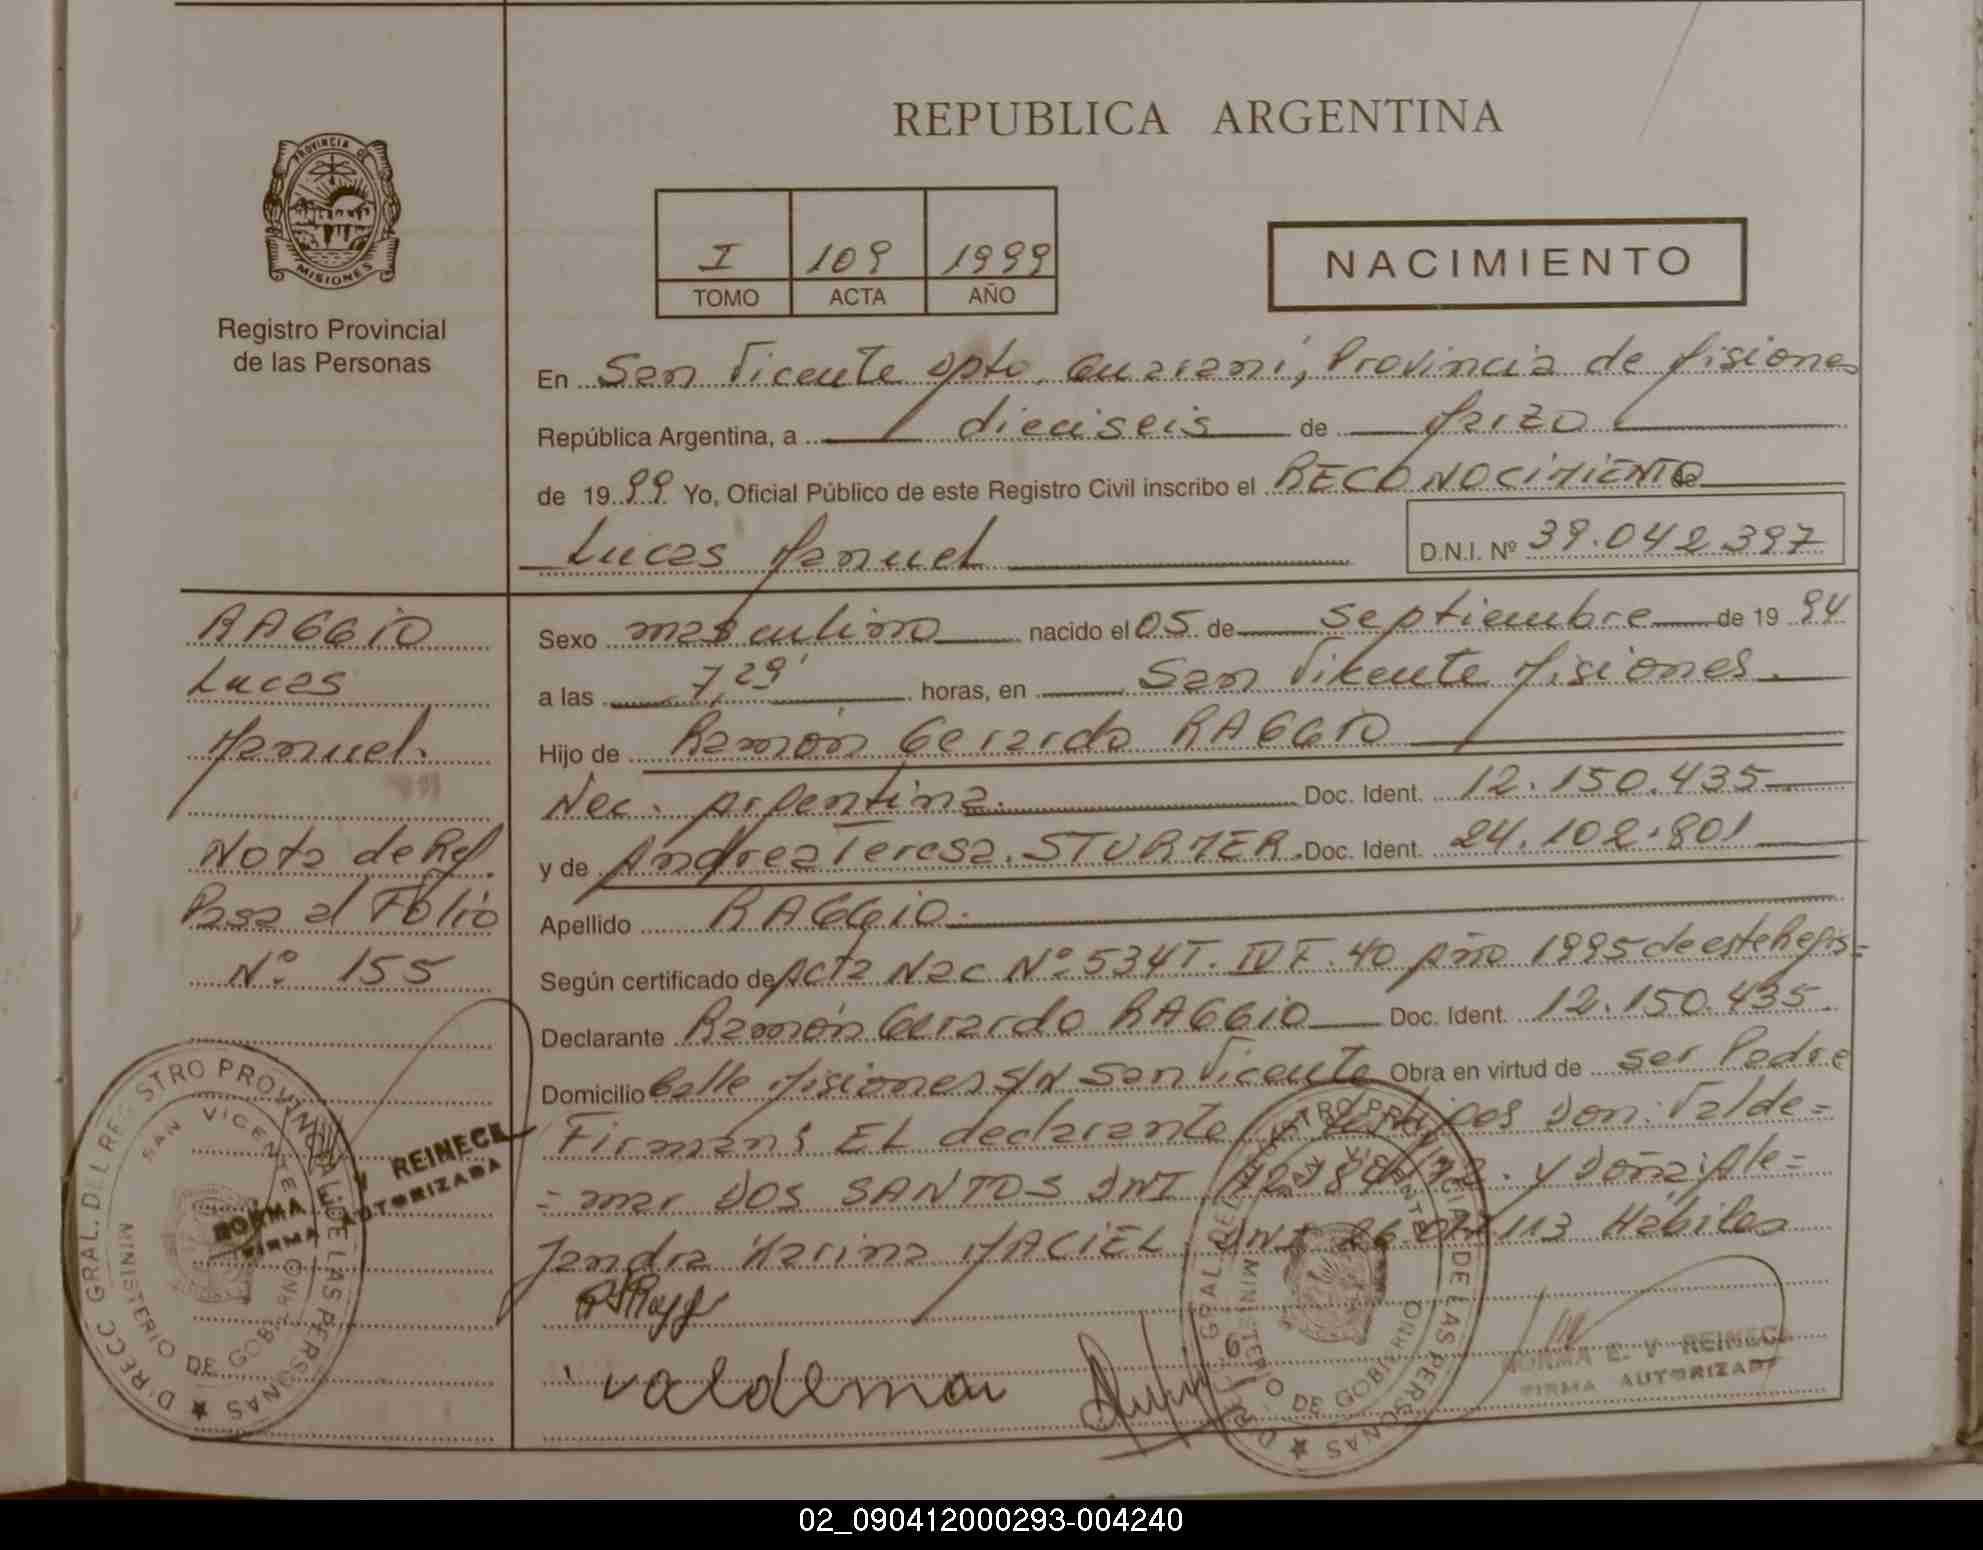 REPUBLICA ARGENTINA
PROVINCIA DE
MISIONES
Registro Provincial
de las Personas
I 109 1999
TOMO ACTA AÑO
NACIMIENTO
En San Vicente Dpto. Guaraní, Provincia de Misiones
República Argentina, a dieciseis de Marzo
de 1999 Yo, Oficial Público de este Registro Civil inscribo el RECONOCIMIENTO de
Lucas Manuel D.N.I. Nº 39.042.397
RAGGIO
Lucas
Manuel.
Nota de Ref.
Pasa al Folio
Nº 155
Sexo masculino nacido el 05 de Septiembre de 1994
a las 7,29' horas, en San Vicente Misiones.
Hijo de Ramón Gerardo RAGGIO
Nac. Argentina. Doc. Ident. 12.150.435
y de Andrea Teresa. STURMER. Doc. Ident. 24.102.801
Apellido RAGGIO.
Según certificado de Acta Nac Nº 534 T. IV F. 40 Año 1995 de este Regis=
Declarante Ramón Gerardo RAGGIO Doc. Ident. 12.150.435.
Domicilio Calle Misiones S/N San Vicente Obra en virtud de ser Padre
Firman: EL declarante y testigos Don: Valde=
=mar DOS SANTOS DNI y Doña: Ale=
jandra Karina MACIEL. DNI 113 Hábiles
Valdemar
DIRECC GRAL. DEL REGISTRO PROVINCIAL DE LAS PERSONAS
SAN VICENTE
MINISTERIO DE GOBIERNO
NORMA E. V REINECK
FIRMA AUTORIZADA
DIRECC GRAL. DEL REGISTRO PROVINCIAL DE LAS PERSONAS
SAN VICENTE
MINISTERIO DE GOBIERNO
NORMA E. V REINECK
FIRMA AUTORIZADA
02_090412000293-004240